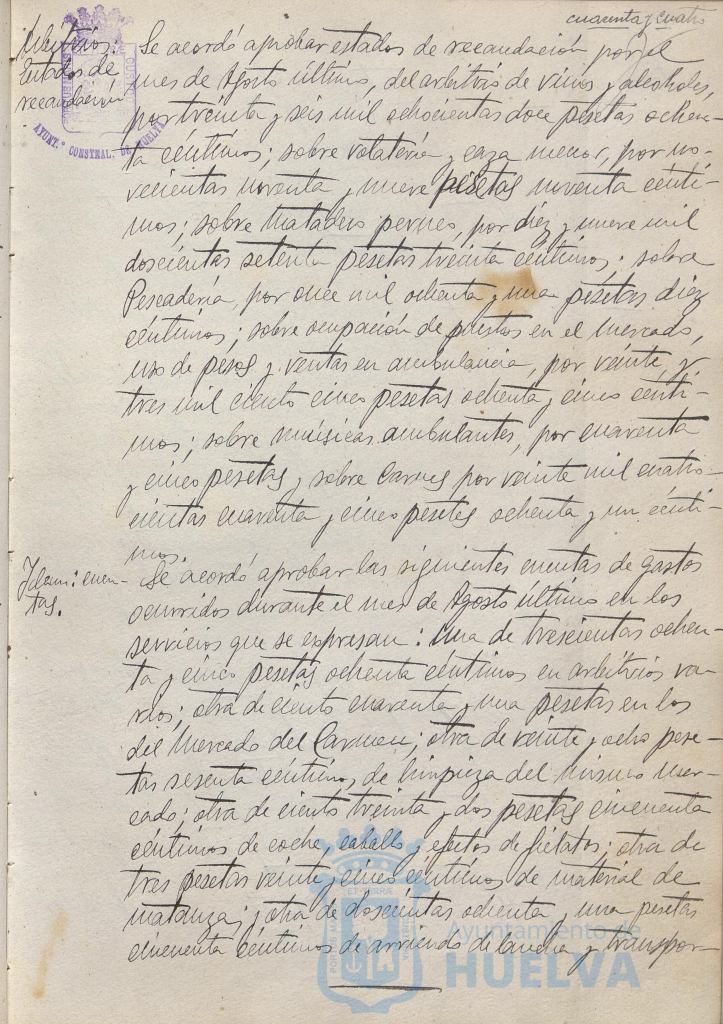 cuarenta y cuatro
Arbitrios:
Estados de
recaudación
AYUNT.º CONSTNAL. DE HUELVA
Se acordó aprobar estados de recaudación por el
mes de Agosto último, del arbitrio de vinos y alcoholes,
por treinta y seis mil ochocientas doce pesetas ochen-
ta céntimos; sobre volatería y caza menor, por no-
vecientas noventa y nueve pesetas noventa cénti-
mos; sobre matadero perneo, por diez y nueve mil
doscientas setenta pesetas treinta céntimos; sobre
Pescadería, por once mil ochenta y una pesetas diez
céntimos; sobre ocupación de puestos en el Mercado,
uso de pesos y ventas en ambulancia, por veinte y
tres mil ciento cinco pesetas ochenta y cinco cénti-
mos; sobre músicas ambulantes, por cuarenta
y cinco pesetas y sobre Carnes por veinte mil cuatro-
cientas cuarenta y cinco pesetas ochenta y un cénti-
mos.
Idem: cuen-
tas.
Se acordó aprobar las siguientes cuentas de gastos
ocurridos durante el mes de Agosto último en los
servicios que se expresan: una de trescientas ochen-
ta y cinco pesetas ochenta céntimos en arbitrios va-
rios; otra de ciento cuarenta y una pesetas en los
del Mercado del Carmen; otra de veinte y ocho pese-
tas sesenta céntimos, de limpieza del mismo mer-
cado; otra de ciento treinta y dos pesetas cincuenta
céntimos de coche, caballo y efectos de fielatos; otra de
tres pesetas veinte y cinco céntimos de material de
matanza; y otra de doscientas ochenta y una pesetas
cincuenta céntimos de arriendo de lancha y transpor-
Ayuntamiento de
HUELVA